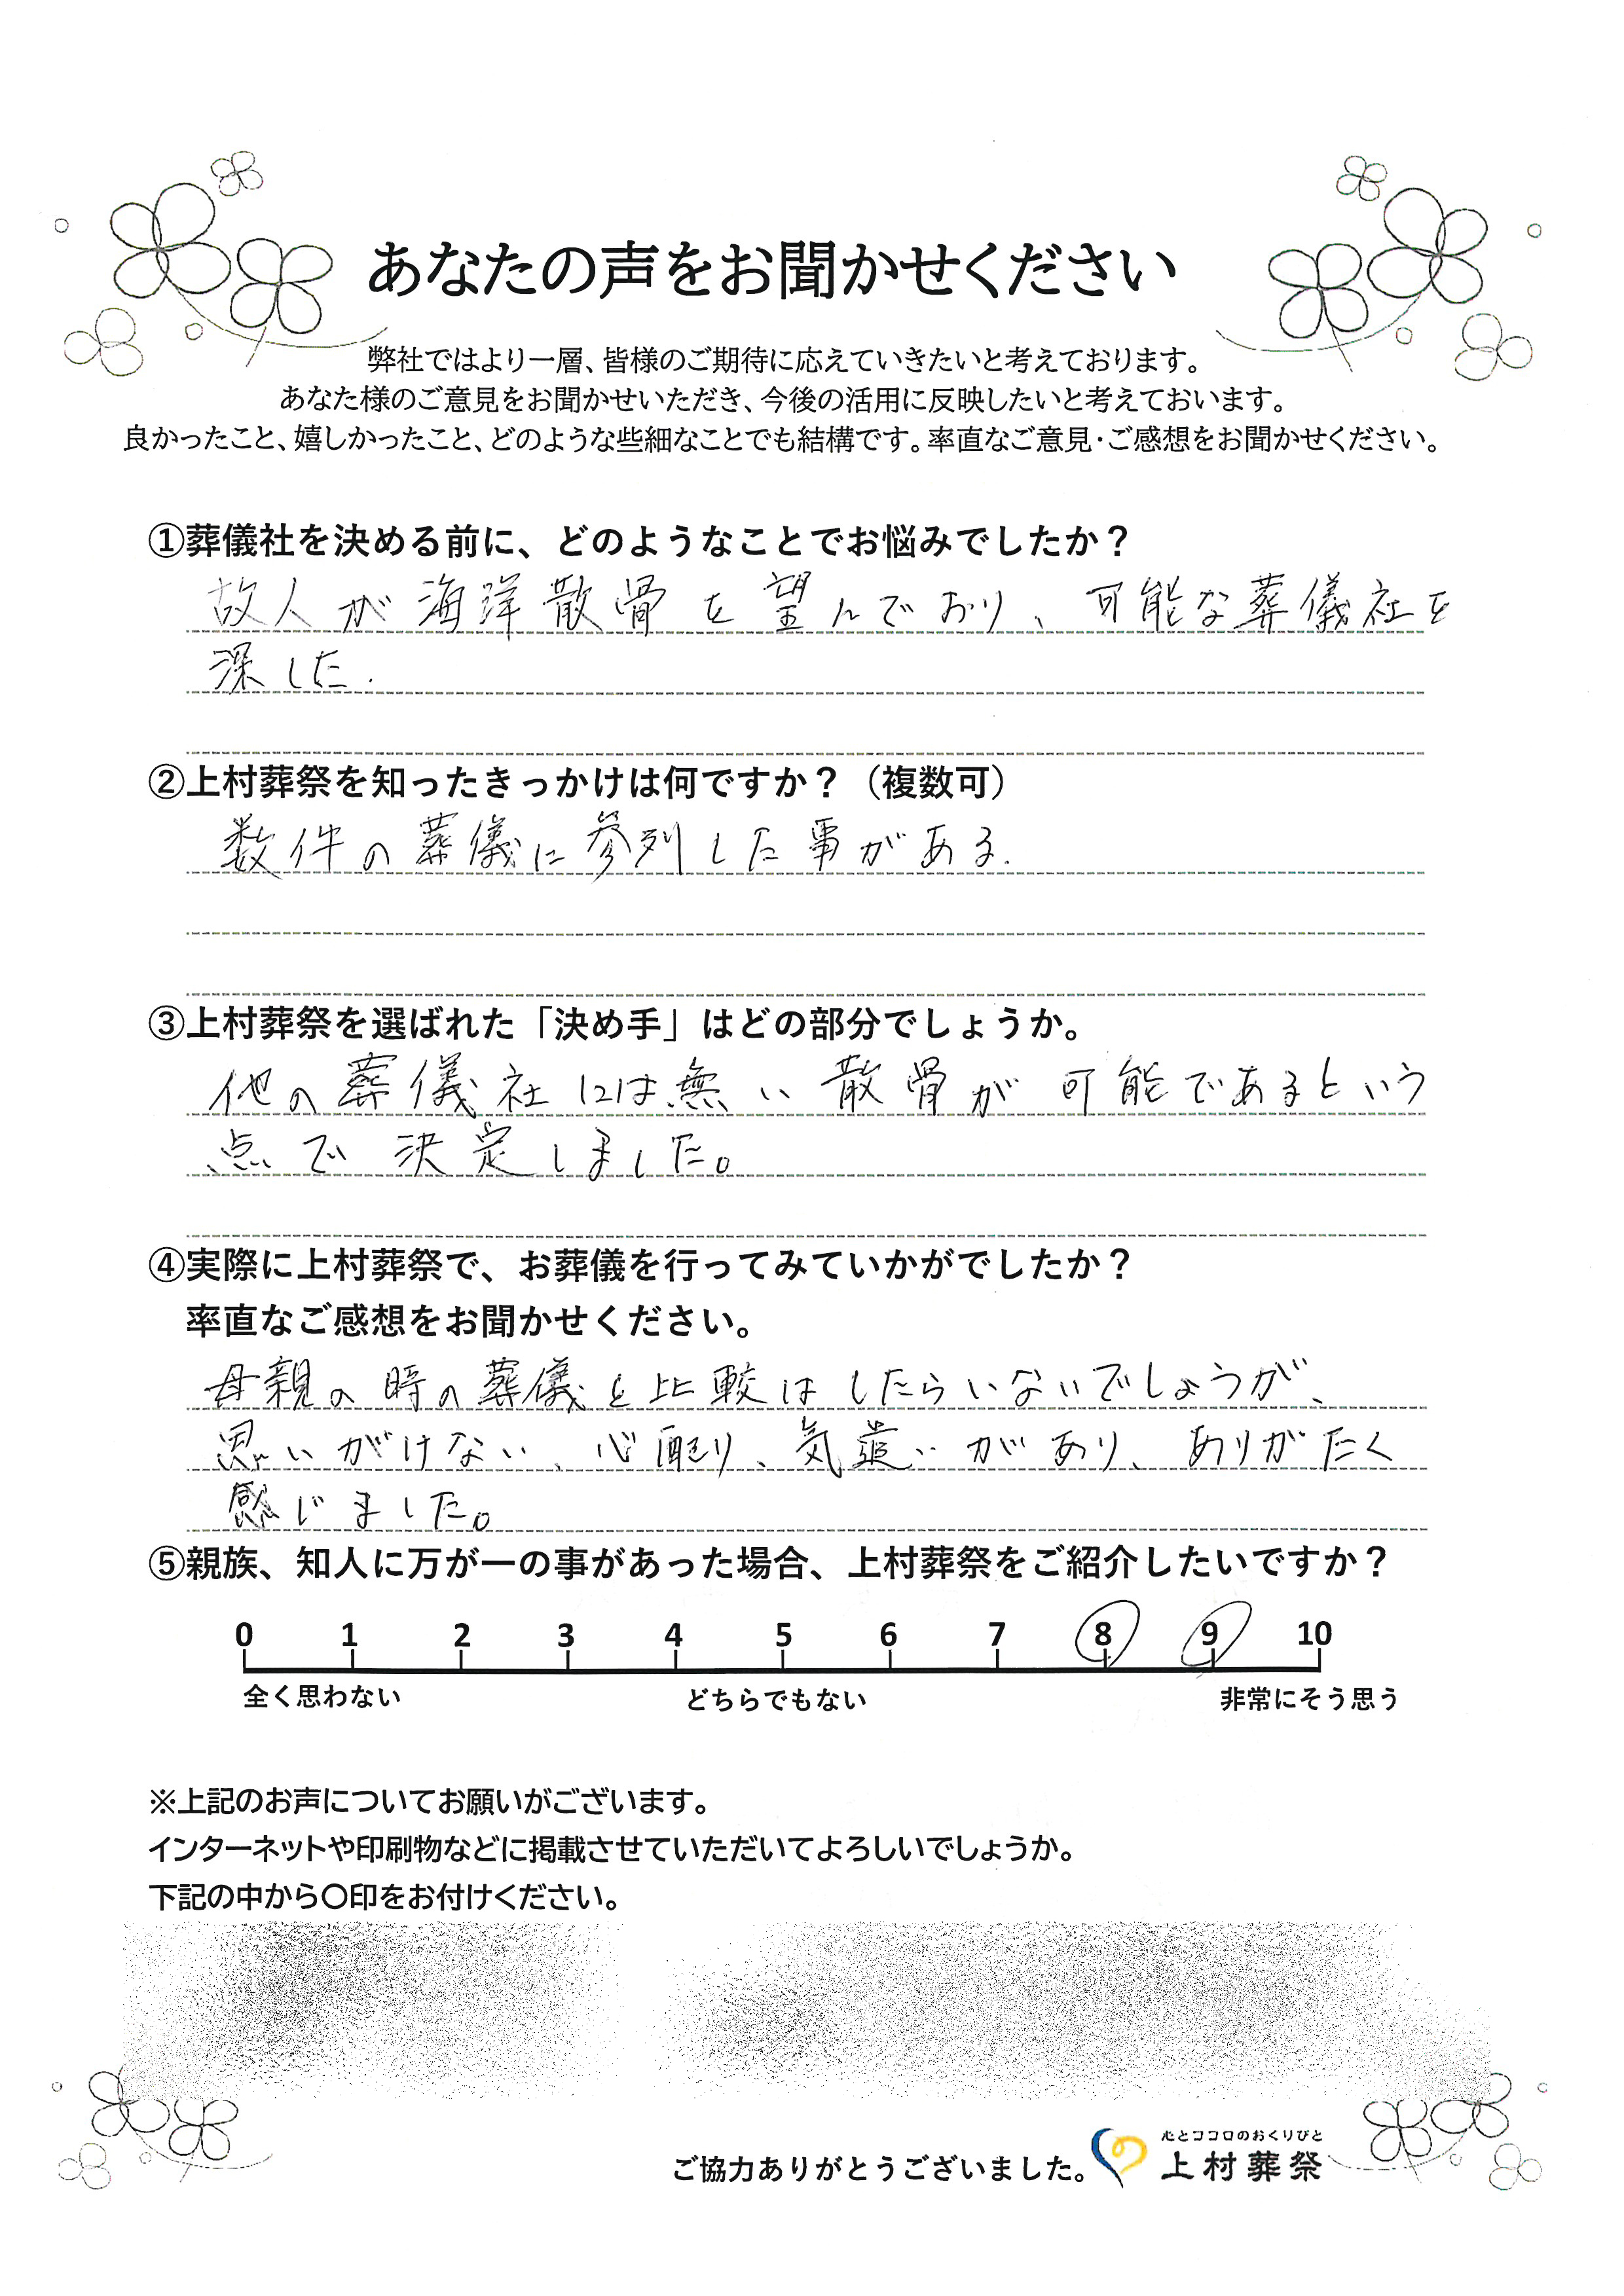 あなたの声をお聞かせください
弊社ではより一層、皆様のご期待に応えていきたいと考えております。
あなた様のご意見をお聞かせいただき、今後の活用に反映したいと考えておいます。
良かったこと、嬉しかったこと、どのような些細なことでも結構です。率直なご意見・ご感想をお聞かせください。
①葬儀社を決める前に、どのようなことでお悩みでしたか？
故人が海洋散骨を望んでおり、可能な葬儀社を
深した.
②上村葬祭を知ったきっかけは何ですか？（複数可）
数件の葬儀に参列した事がある.
③上村葬祭を選ばれた「決め手」はどの部分でしょうか。
他の葬儀社には無い散骨が可能であるという
点で決定しました。
④実際に上村葬祭で、お葬儀を行ってみていかがでしたか？
率直なご感想をお聞かせください。
母親の時の葬儀と比較はしたらいないでしょうが、
思いがけない、心配り、気遣いがあり、ありがたく
感じました。
⑤親族、知人に万が一の事があった場合、上村葬祭をご紹介したいですか？
0 1 2 3 4 5 6 7 8 9 10
全く思わない どちらでもない 非常にそう思う
※上記のお声についてお願いがございます。
インターネットや印刷物などに掲載させていただいてよろしいでしょうか。
下記の中から〇印をお付けください。
心とココロのおくりびと
ご協力ありがとうございました。 上村葬祭